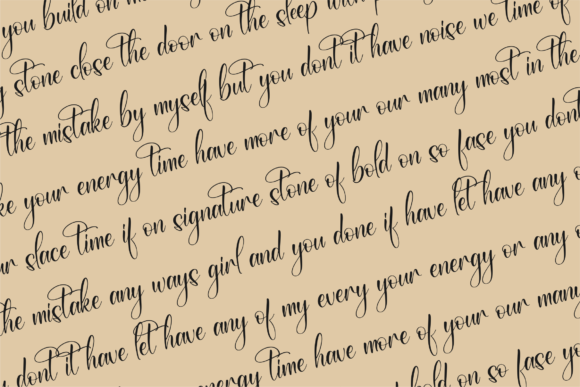 you build on
stone close the door on the sleep with
the mistake by myself but you dont it have noise we time of
your energy time have more of your our many most in the
slace time if on signature stone of bold on so fase you dont
the mistake any ways girl and you done if have let have any
dont it have let have any of my every your energy or any
energy time have more of your our many
bold on so fase